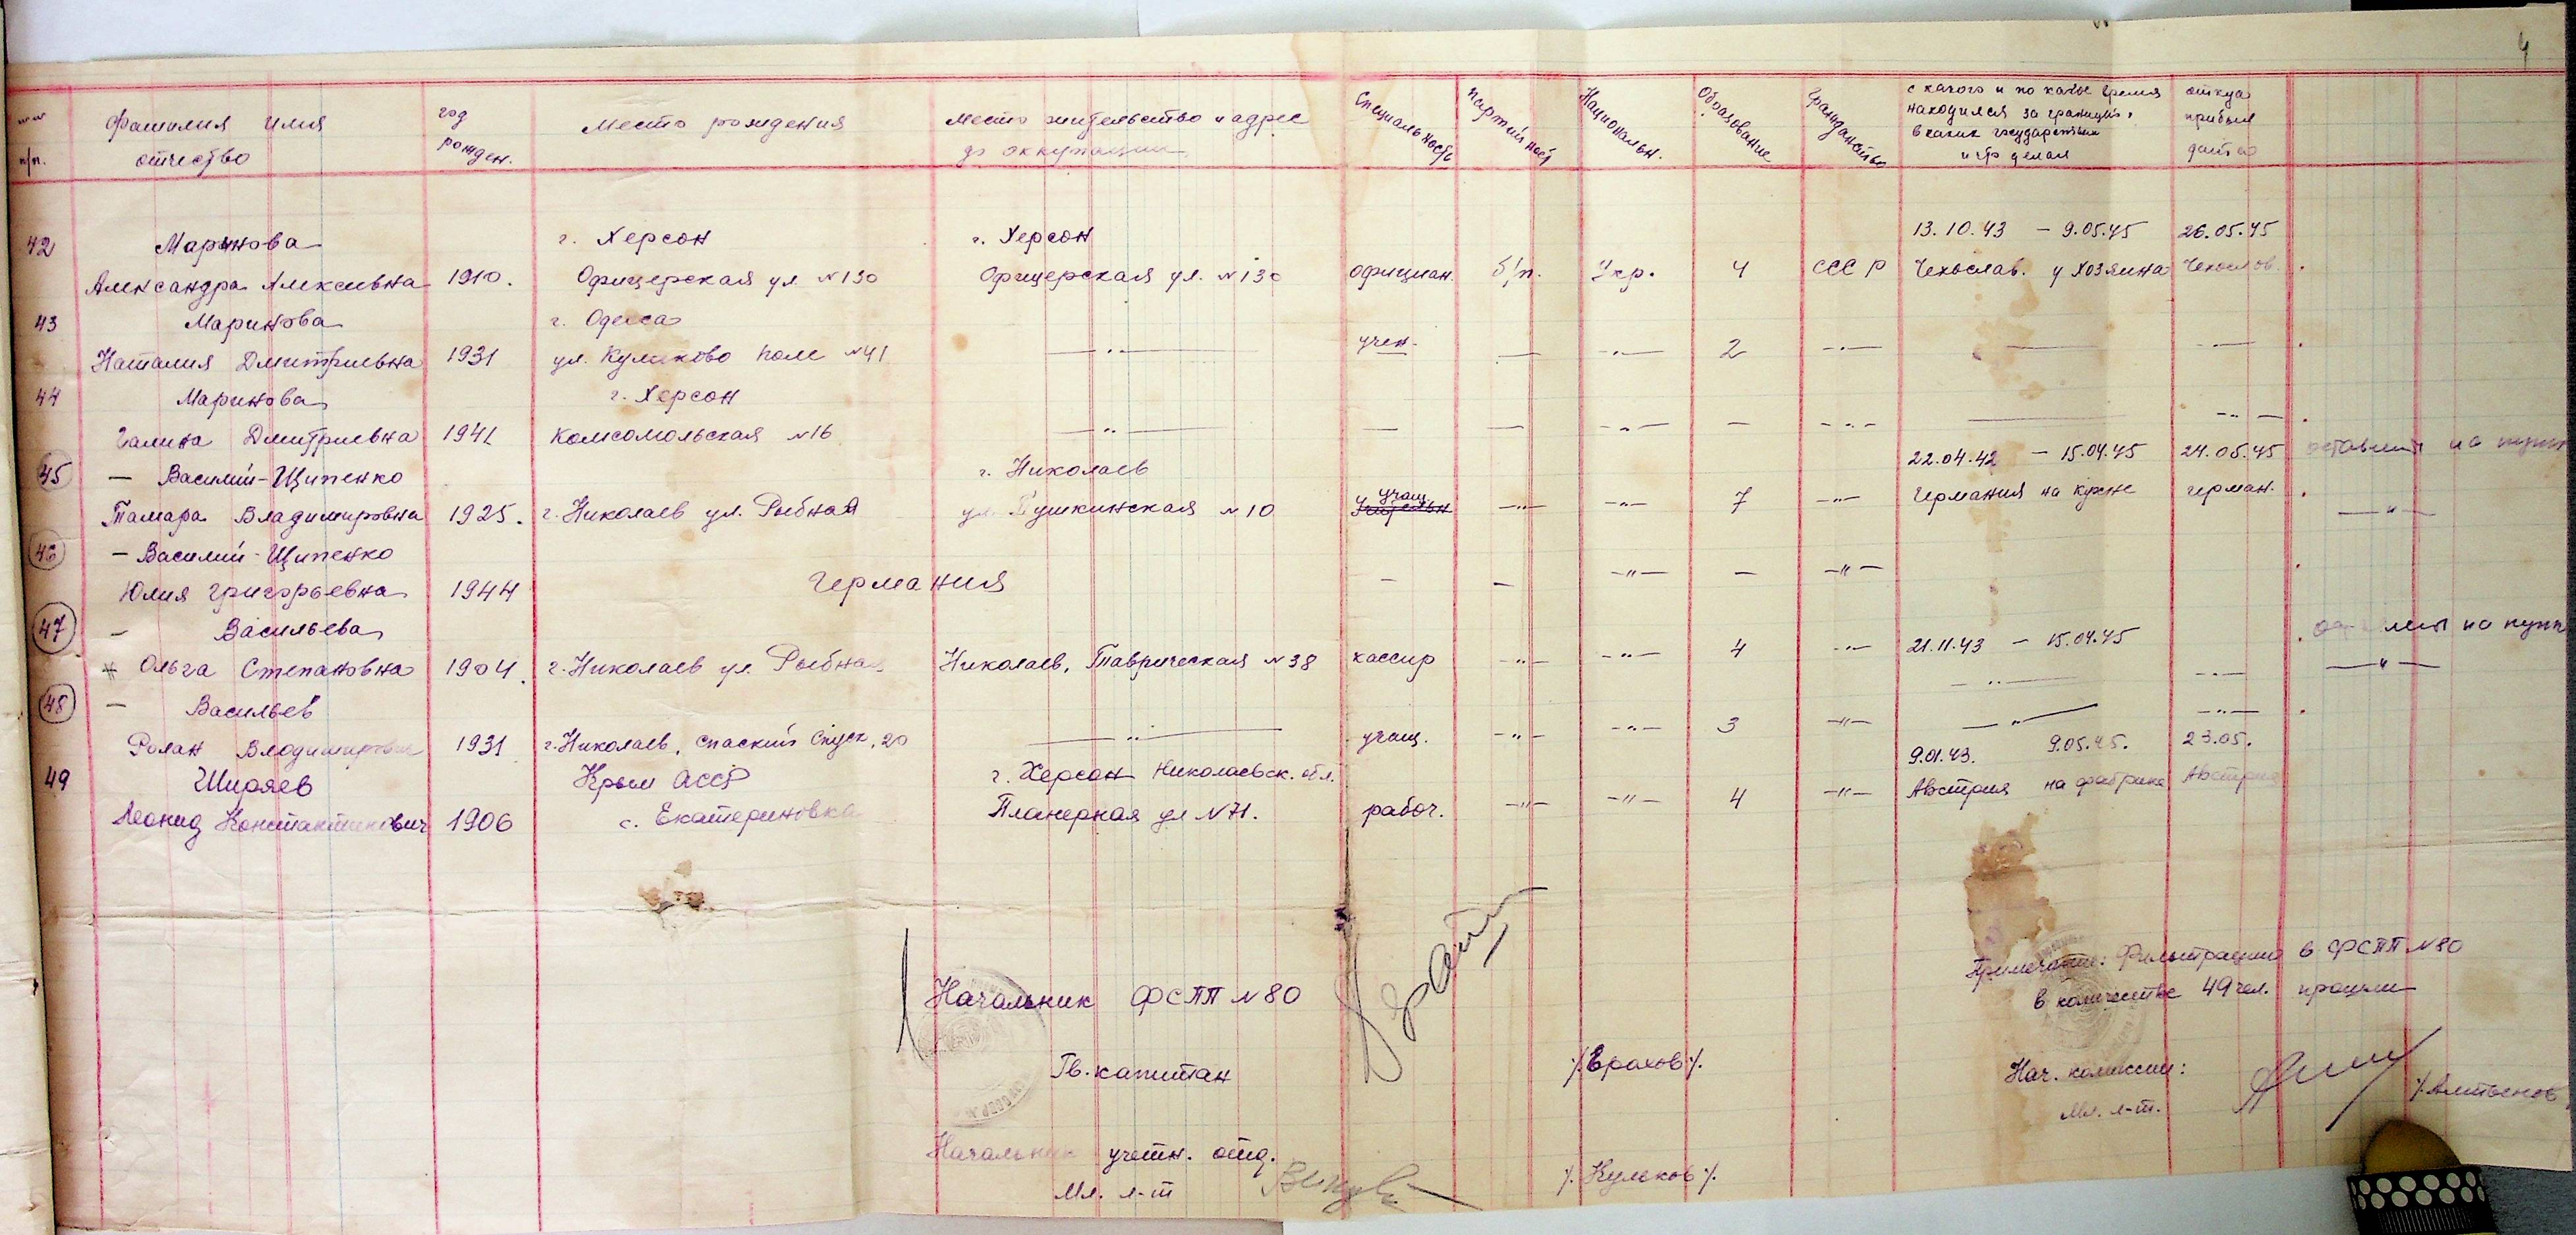 4
№№ п/п.
Фамилия Имя отчество
год рожден.
Место рождения
Место жительство и адрес до оккупации
Специальность
Партийност
Национальн.
Образование
Гражданство
с какого и по какое время находился за границей, в каких государствах и что делал
откуда прибыл дата
42 Маринова г. Херсон г. Херсон 13.10.43 – 9.05.45 26.05.45
Александра Алексеевна 1910. Офицерская ул. №130 Офицерская ул. №130 официан. б/п. Укр. 4 СССР Чехослав. у хозяина Чехослов.
43 Маринова г. Одесса
Наталия Дмитриевна 1931 ул. Куликово поле №41 —"— учен. — —"— 2 —"— — —"—
44 Маринова г. Херсон
Галина Дмитриевна 1941 Комсомольская №16 —"— — — —"— — —"— — —"—
45 – Василий-Щипенко г. Николаев 22.04.42 – 15.04.45 24.05.45 оставлены на пункт
Тамара Владимировна 1925. г. Николаев ул. Рыбная ул. Пушкинская №10 учащ. —"— —"— 7 —"— Германия на кухне герман. —"—
46 – Василий-Щипенко
Юлия Григорьевна 1944 Германия — — —"— — —"—
47 – Васильева 21.11.43 – 15.04.45 на пунк
Ольга Степановна 1904. г. Николаев ул. Рыбная Николаев, Таврическая №38 кассир —"— —"— 4 —"— —"— —"— —"—
48 – Васильев
Ролан Владимирович 1931 г. Николаев, Спаский Спуск, 20 —"— учащ. —"— —"— 3 —"— —"— —"—
49 Ширяев Крым АССР г. Херсон Николаевск. обл. 9.01.43. 9.05.45. 23.05.
Леонид Константинович 1906 с. Екатериновка Планерная ул №71. рабоч. —"— —"— 4 —"— Австрия на фабрике Австрия
Примечание: Фильтрацию в ФСПП №80
в количестве 49 чел. прошли
Начальник ФСПП №80
Гв. капитан /Ерахов/.
Нач. комиссии:
Мл. л-т.
Начальник учетн. отд.
Мл. л-т /Кульков/.